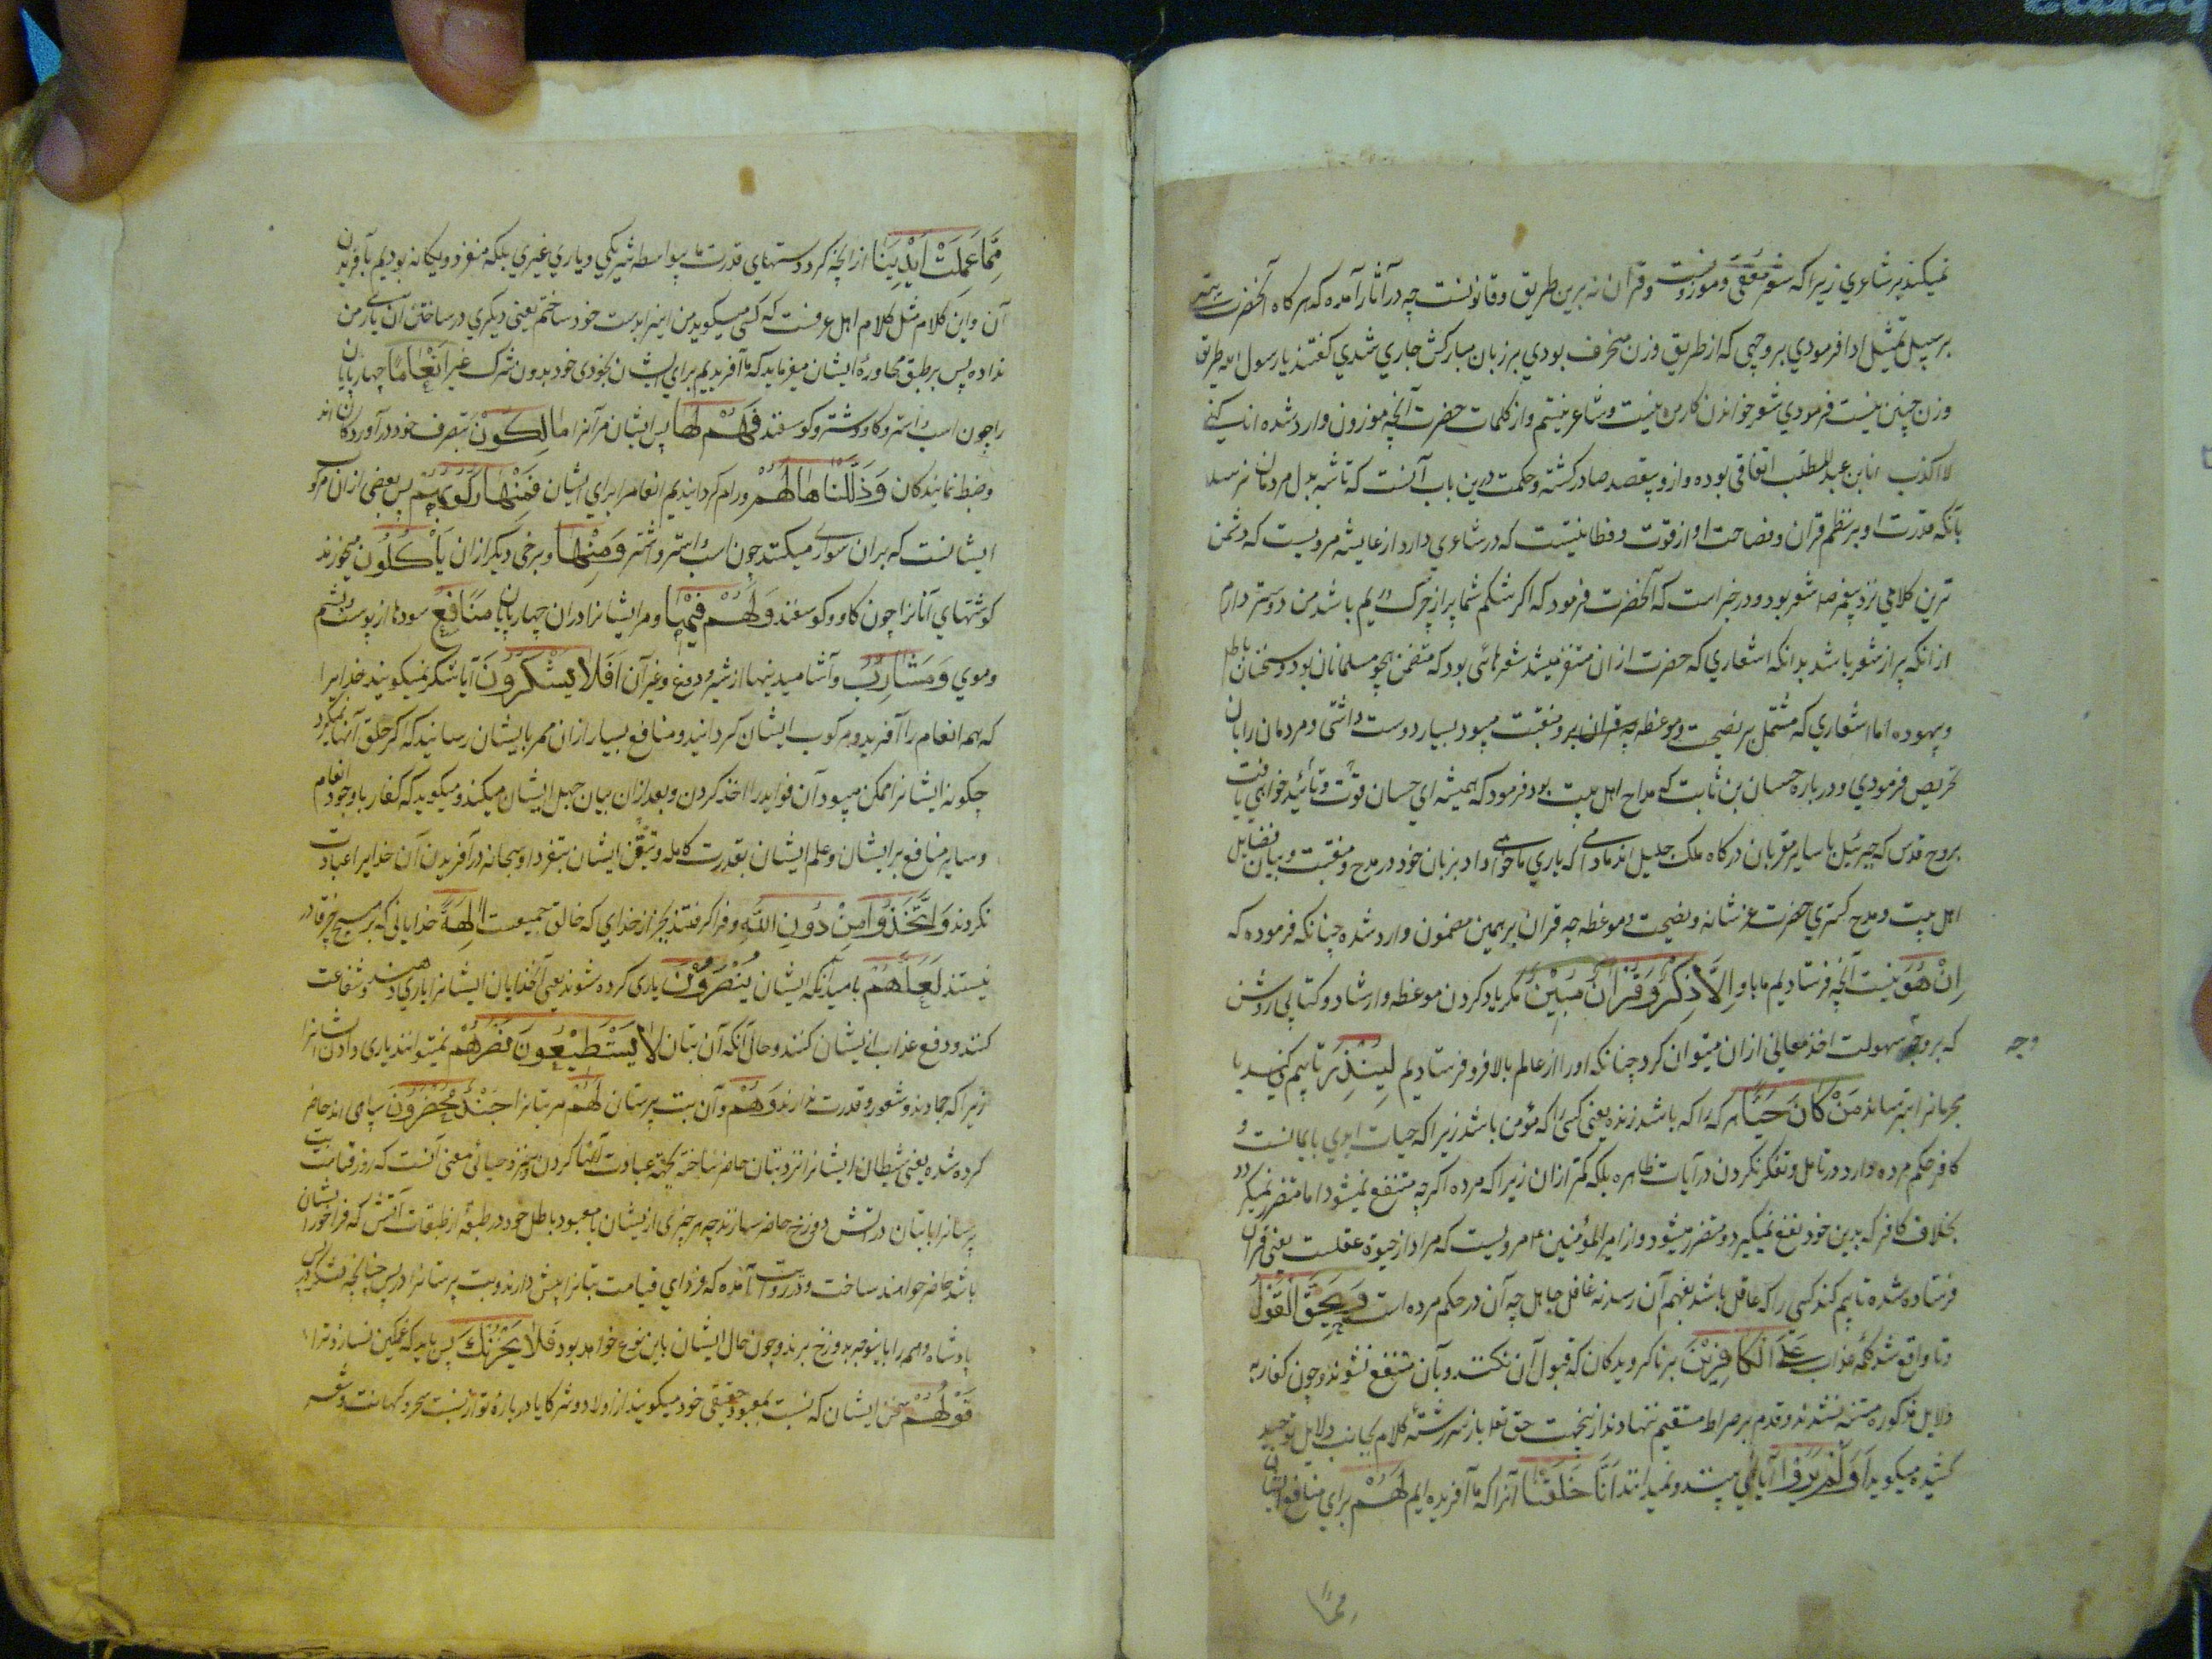 نمیکند بر شاعری زیرا که شعر مقفی و موزونست و قرآن نه برین طریق و قانونست چه در آثار آمده که هرکاه آنحضرت بیتی
بر سبیل تمثیل ادا فرمودی بر وجهی که از طریق وزن منحرف بودی بر زبان مبارکش جاری شدی کفتند یا رسول الله طریق
وزن چنین نیست فرمودی شعر خواندن کار من نیست و شاعر نیستم و از کلمات حضرت آنچه موزون وارد شده
لا اکذب انا بن عبد المطلب اتفاقی بوده و از و بیقصد صادر کشته و حکمت درین باب آنست که تا شبه بدل مردمان نرسد
بآنکه قدرت او بر نظم قرآن و فصاحت او از قوت و فطانتیست که در شاعری دارد از عایشه مرویست که دشمن
ترین کلامی نزد پیغمبر ص شعر بود و در خبر است که آنحضرت فرمود که اکر شکم شما پر از چرک و ریم باشد من دوستر دارم
از انکه پر از شعر باشد بدانکه اشعاری که حضرت از ان متنفر میشد شعرهائی بود که متضمن هجو مسلمانان بود و سخنان باطل
و بیهوده اما اشعاری که مشتمل بر نصیحت و موعظه و منقبت میبود بسیار دوست داشتی و مردمان را بان
تحریص فرمودی و در باره حسان بن ثابت که مداح اهل بیت بود فرمود که همیشه ای حسان قوّت و تأئید خواهی یافت
بروح قدس که جبرئیل با سایر مقربان درکاه ملک جلیل اند مادامی که یاری ما خواهی داد بزبان خود در مدح و منقبت و بیان فضایل
اهل بیت و مدح کستری حضرت عز شانه و نصیحت و موعظه چه قرآن بر همین مضمون وارد شده چنانکه فرموده که
اِنْ هُوَ نیست آنچه فرستادیم ما باو اِلَّا ذِکْرٌ وَ قُرْآنٌ مُبِیْنٌ مکر یاد کردن موعظه و ارشاد و کتابی روشن
که بر وجه سهولت اخذ معانی از ان میتوان کرد چنانکه او را از عالم بالا فرو فرستادیم لِیُنْذِرَ تا بیم کند یا
وجه
مجرمانرا بترساند مَنْ کَانَ حَیًّا هرکه را که باشد زنده یعنی کسی را که مؤمن باشد زیرا که حیات ابدی بایمانست و
کافر حکم مرده دارد در تامل و تفکر نکردن در آیات ظاهره بلکه کمتر از ان زیرا که مرده اکرچه منتفع نمیشود اما متضرر نمیکردد
بخلاف کافر که بدین خود نفع نمیکیرد و متضرر میشود و از امیر المؤمنین ع مرویست که مراد از حیوة عقلست یعنی قرآن
فرستاده شده تا بیم کند کسی را که عاقل باشد بفهم آن رسد نه غافل جاهل چه آن در حکم مرده است وَ یَحِقَّ الْقَوْلُ
و تا واقع شد کلمه عذاب عَلَی الْکَافِرِیْنَ بر ناکرویدکان که قبول آن نکنند و بآن منتفع نشوند و چون کفار به
دلایل مذکوره متنبه نشدند و قدم بر صراط مستقیم ننهادند ازینجهت حق تعا باز سررشتهٔ کلام بجانب دلایل توحید
کشیده میکوید اَوَ لَمْ یَرَوْا آیا نمی بینند و نمیدانند اَنَّا خَلَقْنَا آنرا که ما آفریده ایم لَهُمْ برای منافع ایشان
مِمَّا عَمِلَتْ اَیْدِیْنَا از آنچه کرد دستهای قدرت ما بیواسطه شریکی و یاری غیری بلکه منفرد و یکانه بودیم بآفریدن
آن و این کلام مثل کلام اهل عرفست که کسی میکوید من اینرا بدست خود ساختم یعنی دیکری در ساختن آن یاری من
نداده پس بر طبق محاورهٔ ایشان میفرماید که ما آفریدیم برای ایشان بخودی خود بدون شرکت غیر اَنْعَامًا چهارپایان
را چون اسب و استر و کاو و شتر و کوسفند فَهُمْ لَهَا پس ایشان مر آنرا مَالِکُوْنَ بتصرف خود درآوردکان اند
و ضبط نمایندکان وَ ذَلَّلْنَاهَا لَهُمْ و رام کردانیدیم انعامرا برای ایشان فَمِنْهَا رَکُوْبُهُمْ پس بعضی از ان مرکوب
ایشانست که بران سواری میکنند چون اسب و استر و اشتر وَ مِنْهَا و برخی دیکر ازان یَأْکُلُوْن میخورند
کوشتهای آنانرا چون کاو و کوسفند وَ لَهُمْ فِیْهَا و مر ایشانرا دران چهارپایان مَنَافِعُ سودها از پوست و پشم
و موی وَ مَشَارِبُ و آشامیدنیها از شیر و دوغ و غیر آن اَفَلَا یَشْکُرُوْنَ آیا شکر نمیکویند خدایرا
که همه انعام را آفرید و مرکوب ایشان کردانید و منافع بسیار از ان ممر بایشان رسانید که اکر خلق آنها نمیکرد
چکونه ایشانرا ممکن میبود آن فوایدرا اخذ کردن و بعد ازان بیان جهل ایشان میکند و میکوید که کفار با وجود انعام
و سایر منافع بر ایشان و علم ایشان بقدرت کامله و تیقن ایشان بتفرد او سبحانه در آفریدن آن خدایرا عبادت
نکردند وَ اتَّخَذُوْا مِنْ دُوْنِ اللّٰهِ و فرا کرفتند بجز از خدای که خالق جمیعست اٰلِهَةً خدایانی که بر هیچ چیز قادر
نیستند لَعَلَّهُمْ بامید آنکه ایشان یُنْصَرُوْنَ یاری کرده شوند یعنی آنخدایان ایشانرا یاری دهند و شفاعت
کنند و دفع عذاب از ایشان کنند و حال آنکه آن بتان لَا یَسْتَطِیْعُوْنَ نَصْرَهُمْ نمیتوانند یاری دادن ایشانرا
زیرا که جمادند و شعور و قدرت ندارند وَ هُمْ و آن بت پرستان لَهُمْ مر بتانرا جُنْدٌ مُحْضَرُوْنَ سپاهی اند حاضر
کرده شده یعنی شیطان ایشانرا نزد بتان حاضر ساخته بجهة عبادت آنها کردن معنی آنست که روز قیامت بت
پرستانرا با بتان در آتش دوزخ حاضر سازند چه هر حزبی از ایشان با معبود باطل خود در طبقهٔ از طبقات آتش که فراخور ایشان
باشد حاضر خواهند ساخت و در روایت آمده که فردای قیامت بتانرا پیش دارند و بت پرستانرا در پس چنانچه لشکر در پس
پادشاه و همه را باینوجه بدوزخ برند و چون حال ایشان باین نوع خواهد بود فَلَا یَحْزُنْکَ پس باید که غمکین نسازد ترا
قَوْلُهُمْ سخن ایشان که نسبت بمعبود حقیقی خود میکویند از اولاد و شرکا یا در بارهٔ تو از نسبت سحر و کهانت و شعر